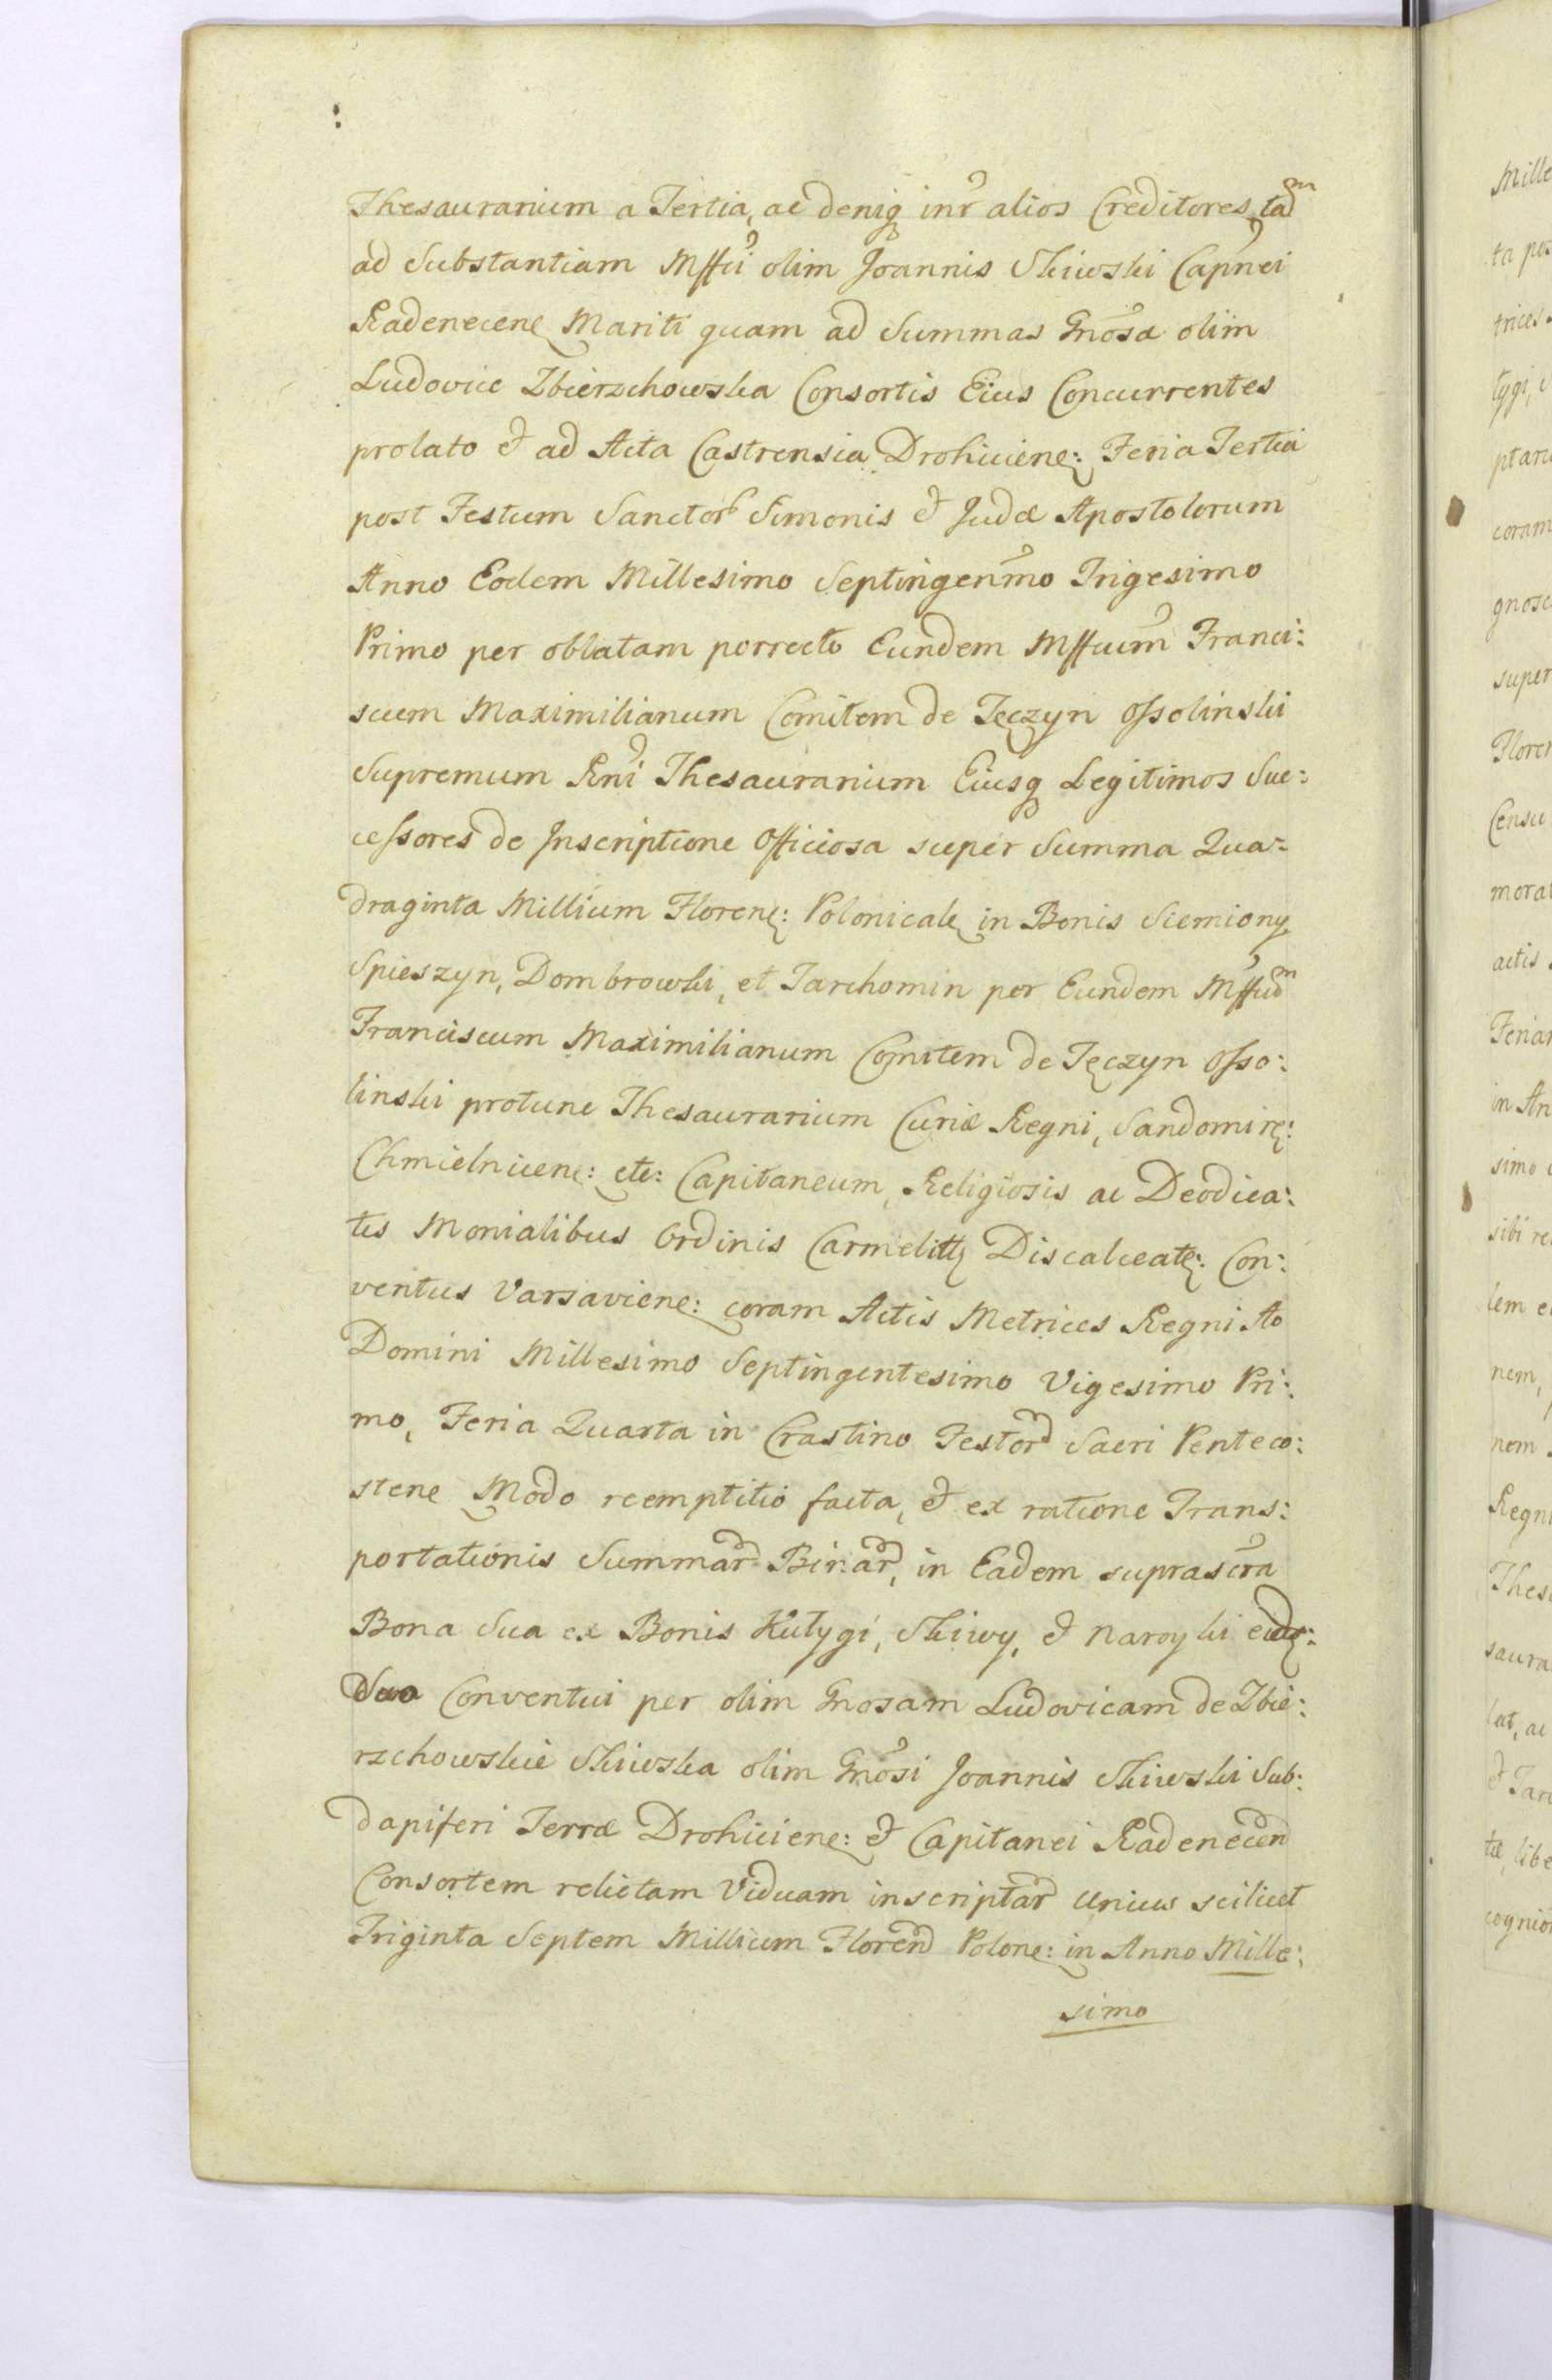 Thesaurarium a Tertia, ac deniq inr alios Creditores, tam
ad Substantiam Mffci olim Joannis Skiwski Capnei
Radenecens Mariti quam ad Summas Gnosæ olim
Ludovicæ Zbierzchowska Consortis Eius Concurrentes
prolato et ad Acta Castrensia Drohiciens: Feria Tertia
post Festum Sanctor Simonis et Judæ Apostolorum
Anno Eodem Millesimo Septingenmo Trigesimo
Primo per oblatam porrecto Eundem Mffcum Franci:
scum Maximilianum Comitem de Tęczyn Ossolinski
Supremum Rni Thesaurarium Eiusq Legitimos Suc:
cessores de Inscriptione Officiosa super Summa Qua:
draginta Millium Floren: Polonical in Bonis Siemiony
Spieszyn, Dombrowki, et Tarchomin per Eundem Mffcum
Franciscum Maximilianum Comitem de Tęczyn Osso:
linski protunc Thesaurarium Curiæ Regni, Sandomir:
Chmielnicen: etc: Capitaneum, Religiosis ac Deodica:
tis Monialibus Ordinis Carmelitt Discalceat: Con:
ventus Varsavien: coram Actis Metrices Regni Ao
Domini Millesimo Septingentesimo Vigesimo Pri:
mo, Feria Quarta in Crastino Festor Sacri Penteco:
stene Modo reemptitio facta, et ex ratione Trans:
portationis Summar Binar, in Eadem suprascra
Bona Sua ex Bonis Kutygi, Skiwy, et Naroyki eid:
Suo Conventui per olim Gnosam Ludovicam de Zbie:
rzchowskie Skiwska olim Gnosi Joannis Skiwski Sub:
dapiferi Terræ Drohicien: et Capitanei Radenecen
Consortem relictam Viduam inscriptar Unius scilicet
Triginta Septem Millium Floren Polon: in Anno Mille:
simo